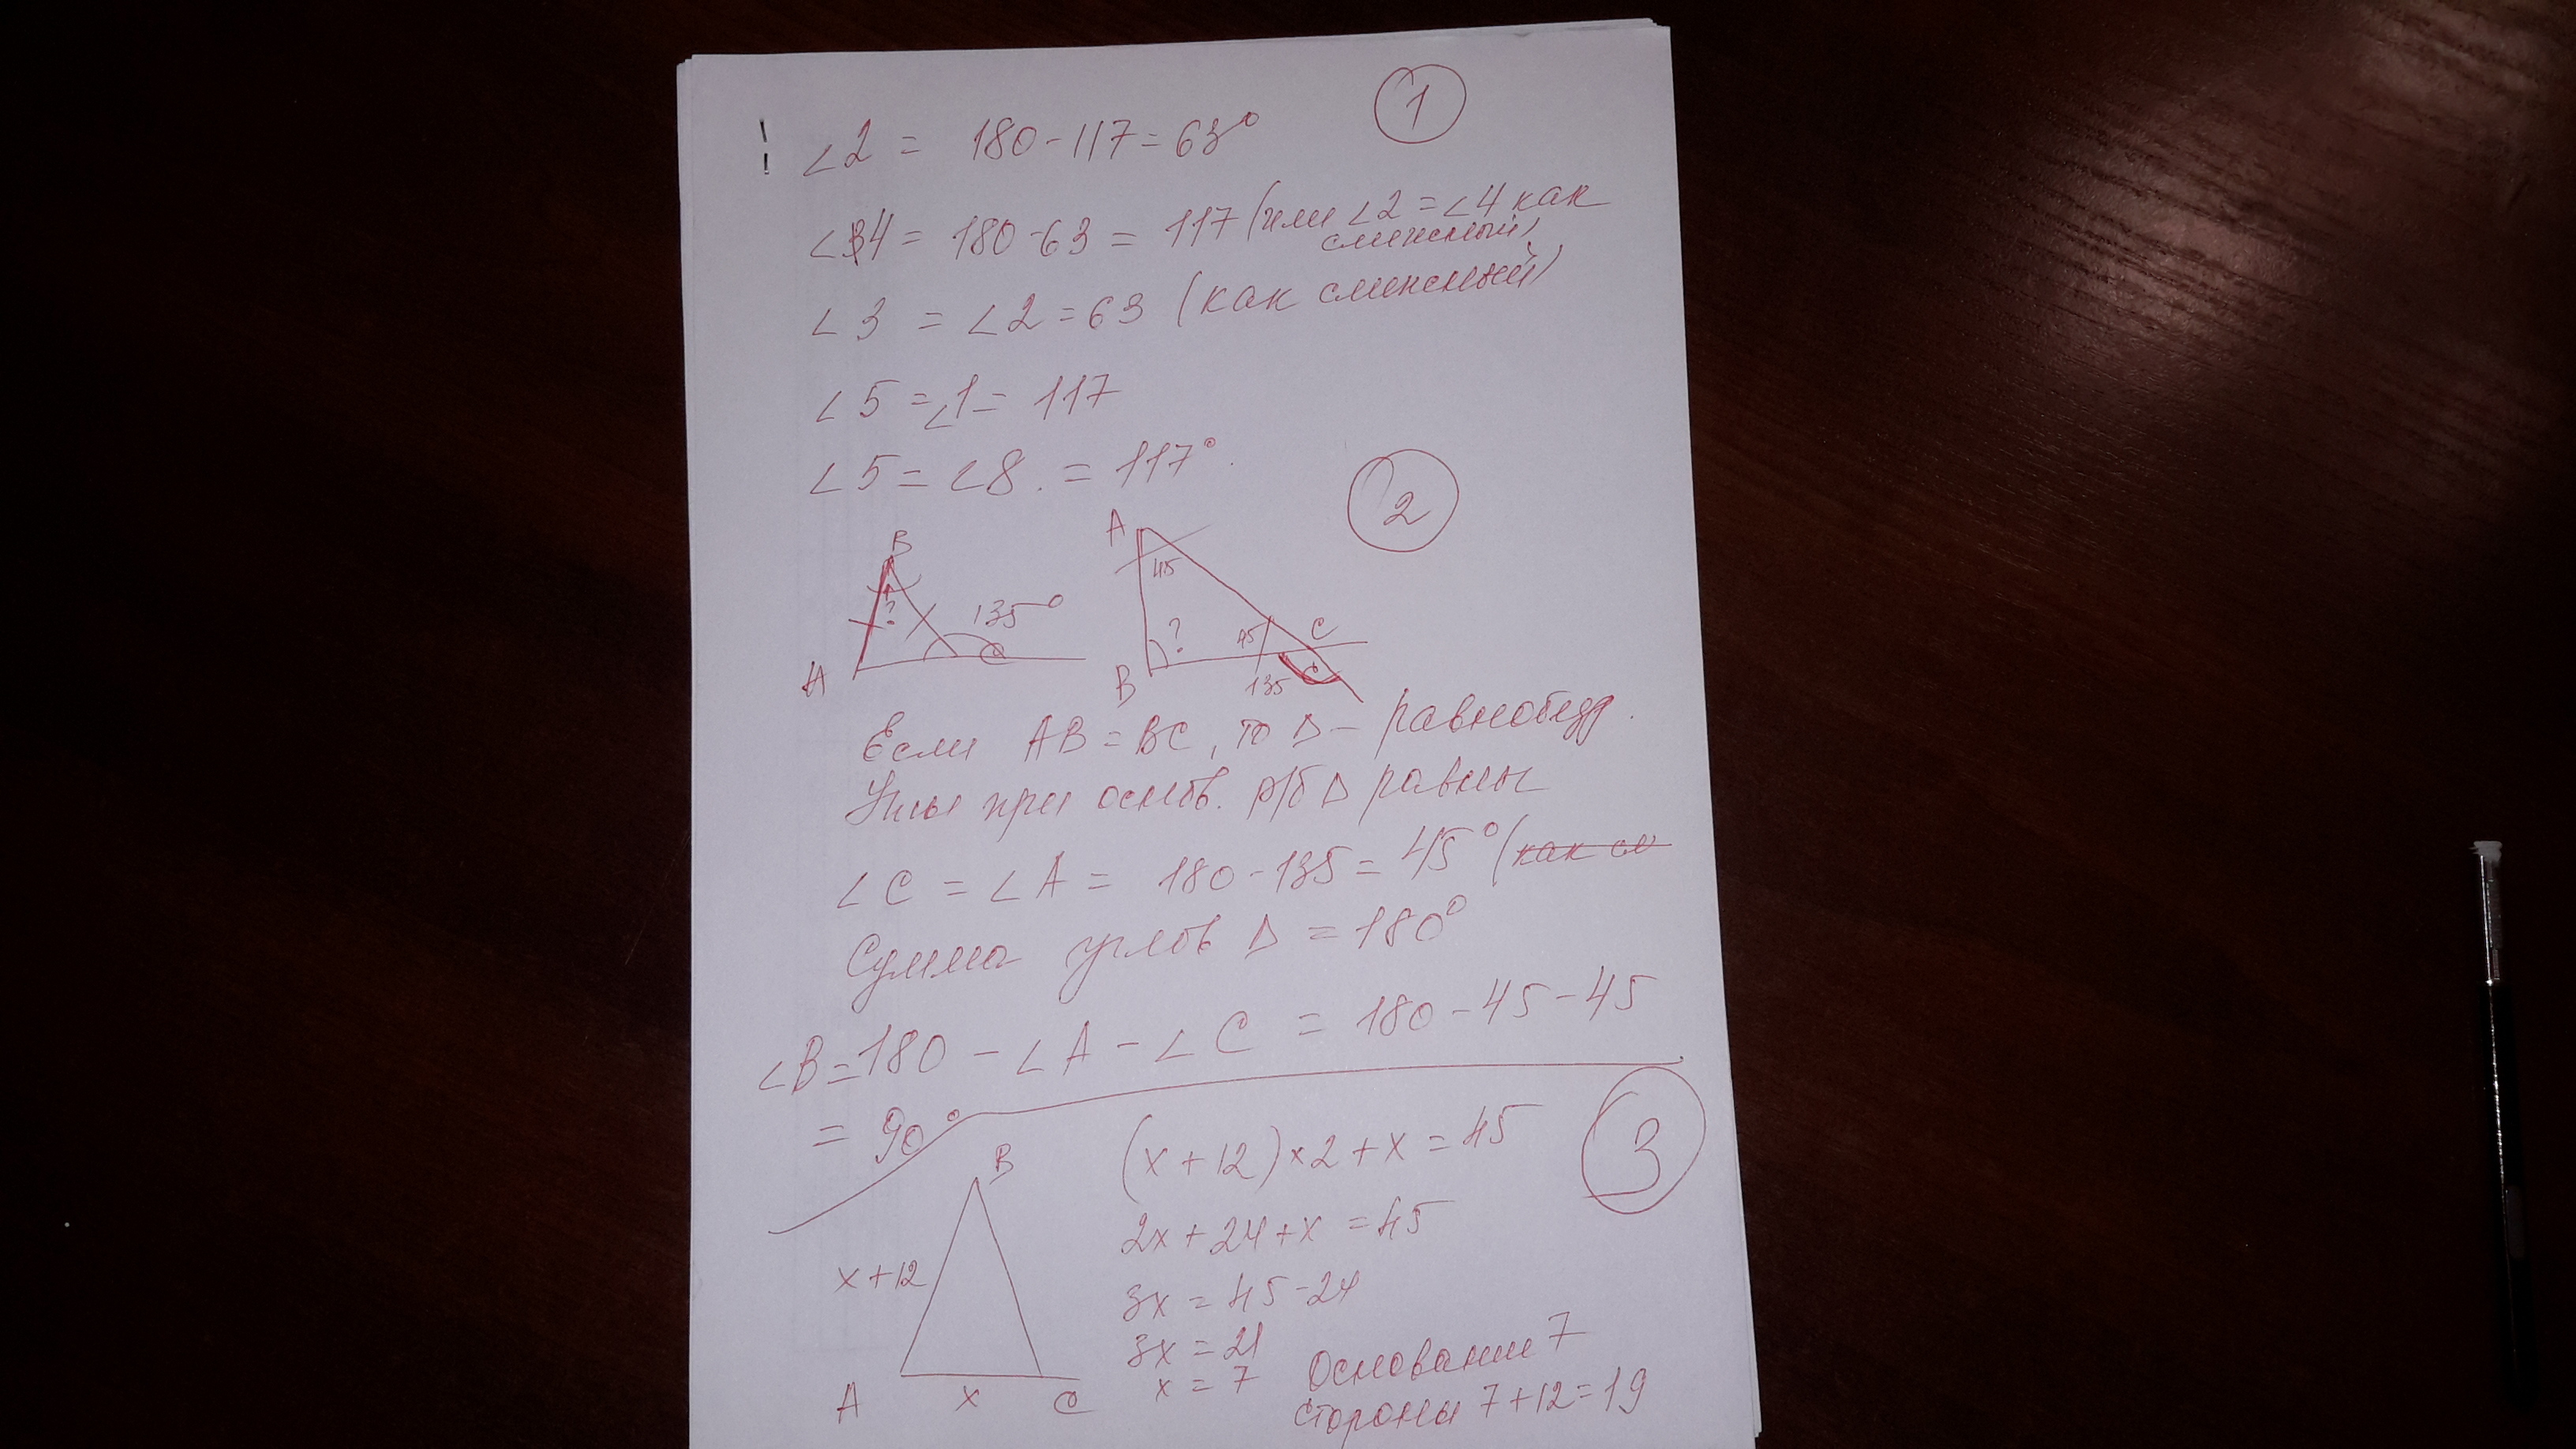 ①
∠2 = 180-117=63°
∠4 = 180-63 = 117 (или ∠2=∠4 как
смежный)
∠3 = ∠2=63 (как смежный)
∠5 =∠1= 117
∠5 = ∠8. = 117°.
②
B
?
135°
A
C
A
45
?
45
C
B
135
C
Если AB=BC, то Δ- равнобедр.
Углы при основ. р/б Δ равны
∠C = ∠A = 180-135= 45° (как см
Сумма углов Δ = 180°
∠B=180 - ∠A - ∠C = 180-45-45
= 90°
③
B
x+12
A
x
C
(x+12)×2+x=45
2x+24+x =45
3x = 45-24
3x = 21
x = 7
Основание 7
стороны 7+12=19